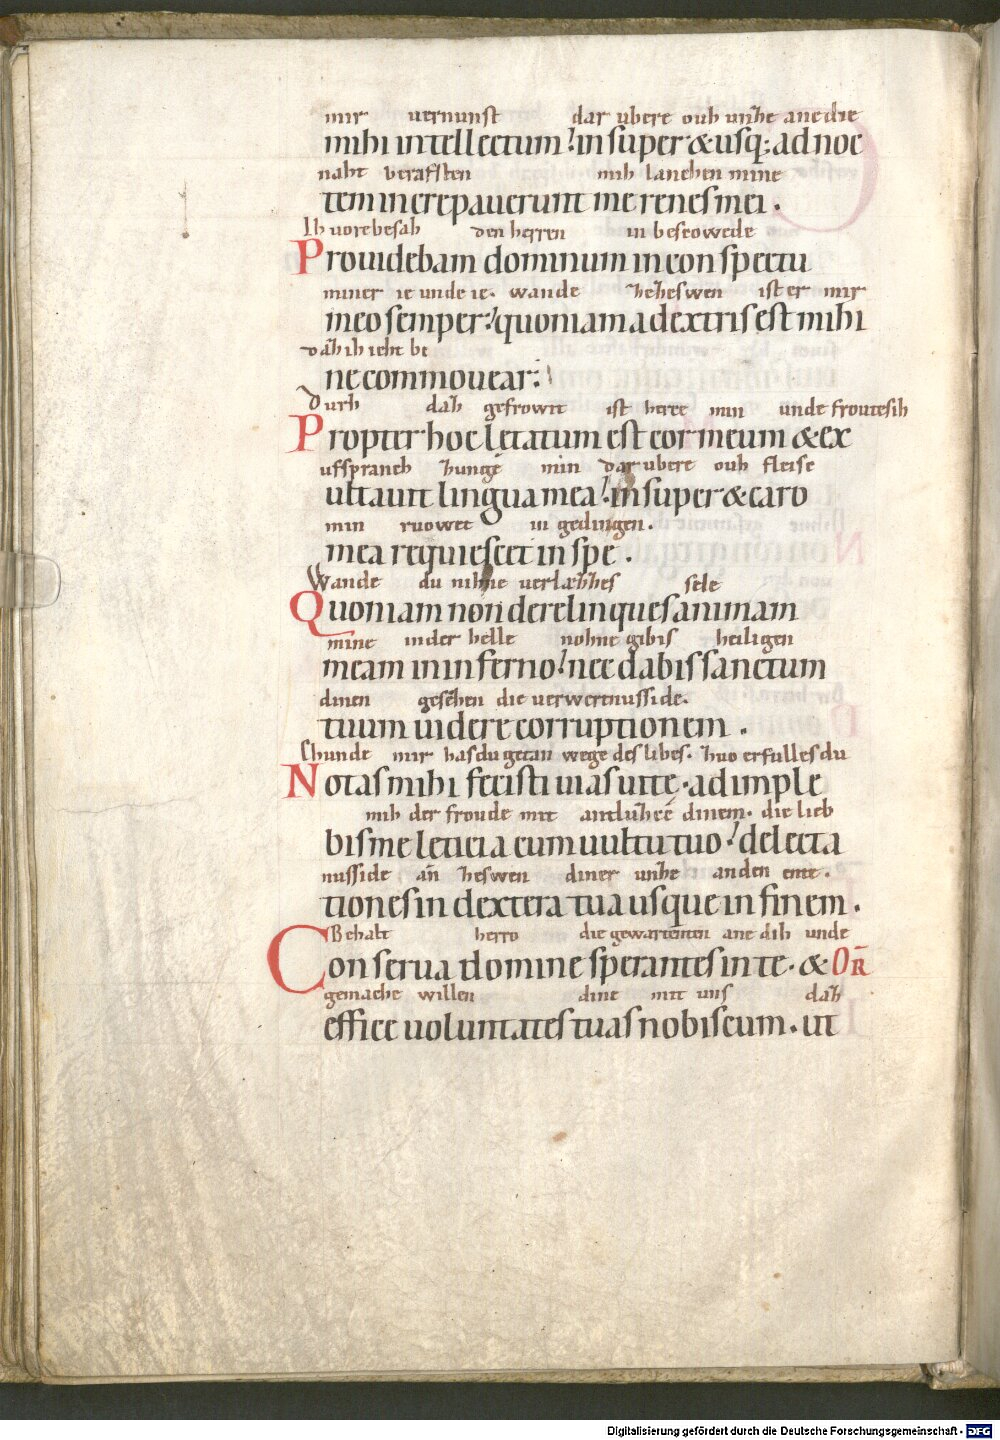 mir vernunst dar ubere ouh unhe ane die
mihi intellectum. insuper & usq; ad noc
naht verafsten mih lanchen mine
tem increpauerunt me renes mei.
Ih vore besah den herren in bescowede
Prouidebam dominum in conspectu
miner ie unde ie. wande ist er mir
meo semper. quoniam a dextris est mihi
dah ih ieht be
ne commouear.
Durh dah gefrowit ist herce min unde froute sih
Propter hoc letatum est cor meum & ex
ufspranch zunge min dar ubere ouh fleisc
ultauit lingua mea. insuper & caro
min ruowet in gedingen.
mea requiescet in spe.
Wande du nihne verlazzes sele
Quoniam non derelinques animam
mine in der helle nohne gibis heiligen
meam in inferno. nec dabis sanctum
dinen gesehen die verwerenusside.
tuum uidere corruptionem.
Chunde mir hasdu getan wege des libes. zuo erfulles du
Notas mihi fecisti uias uite. adimple
mih der froude mit antluzze dinem. die lieb
bis me leticia cum uultu tuo. delecta
nusside an zeswen diner unze an den ente.
tiones in dextera tua usque in finem.
Behalt herro die gewartenten ane dih unde
Conserua domine sperantes in te. & OR
gemache willen dine mit uns dah
effice uoluntates tuas nobiscum. ut
Digitalisierung gefördert durch die Deutsche Forschungsgemeinschaft - DFG